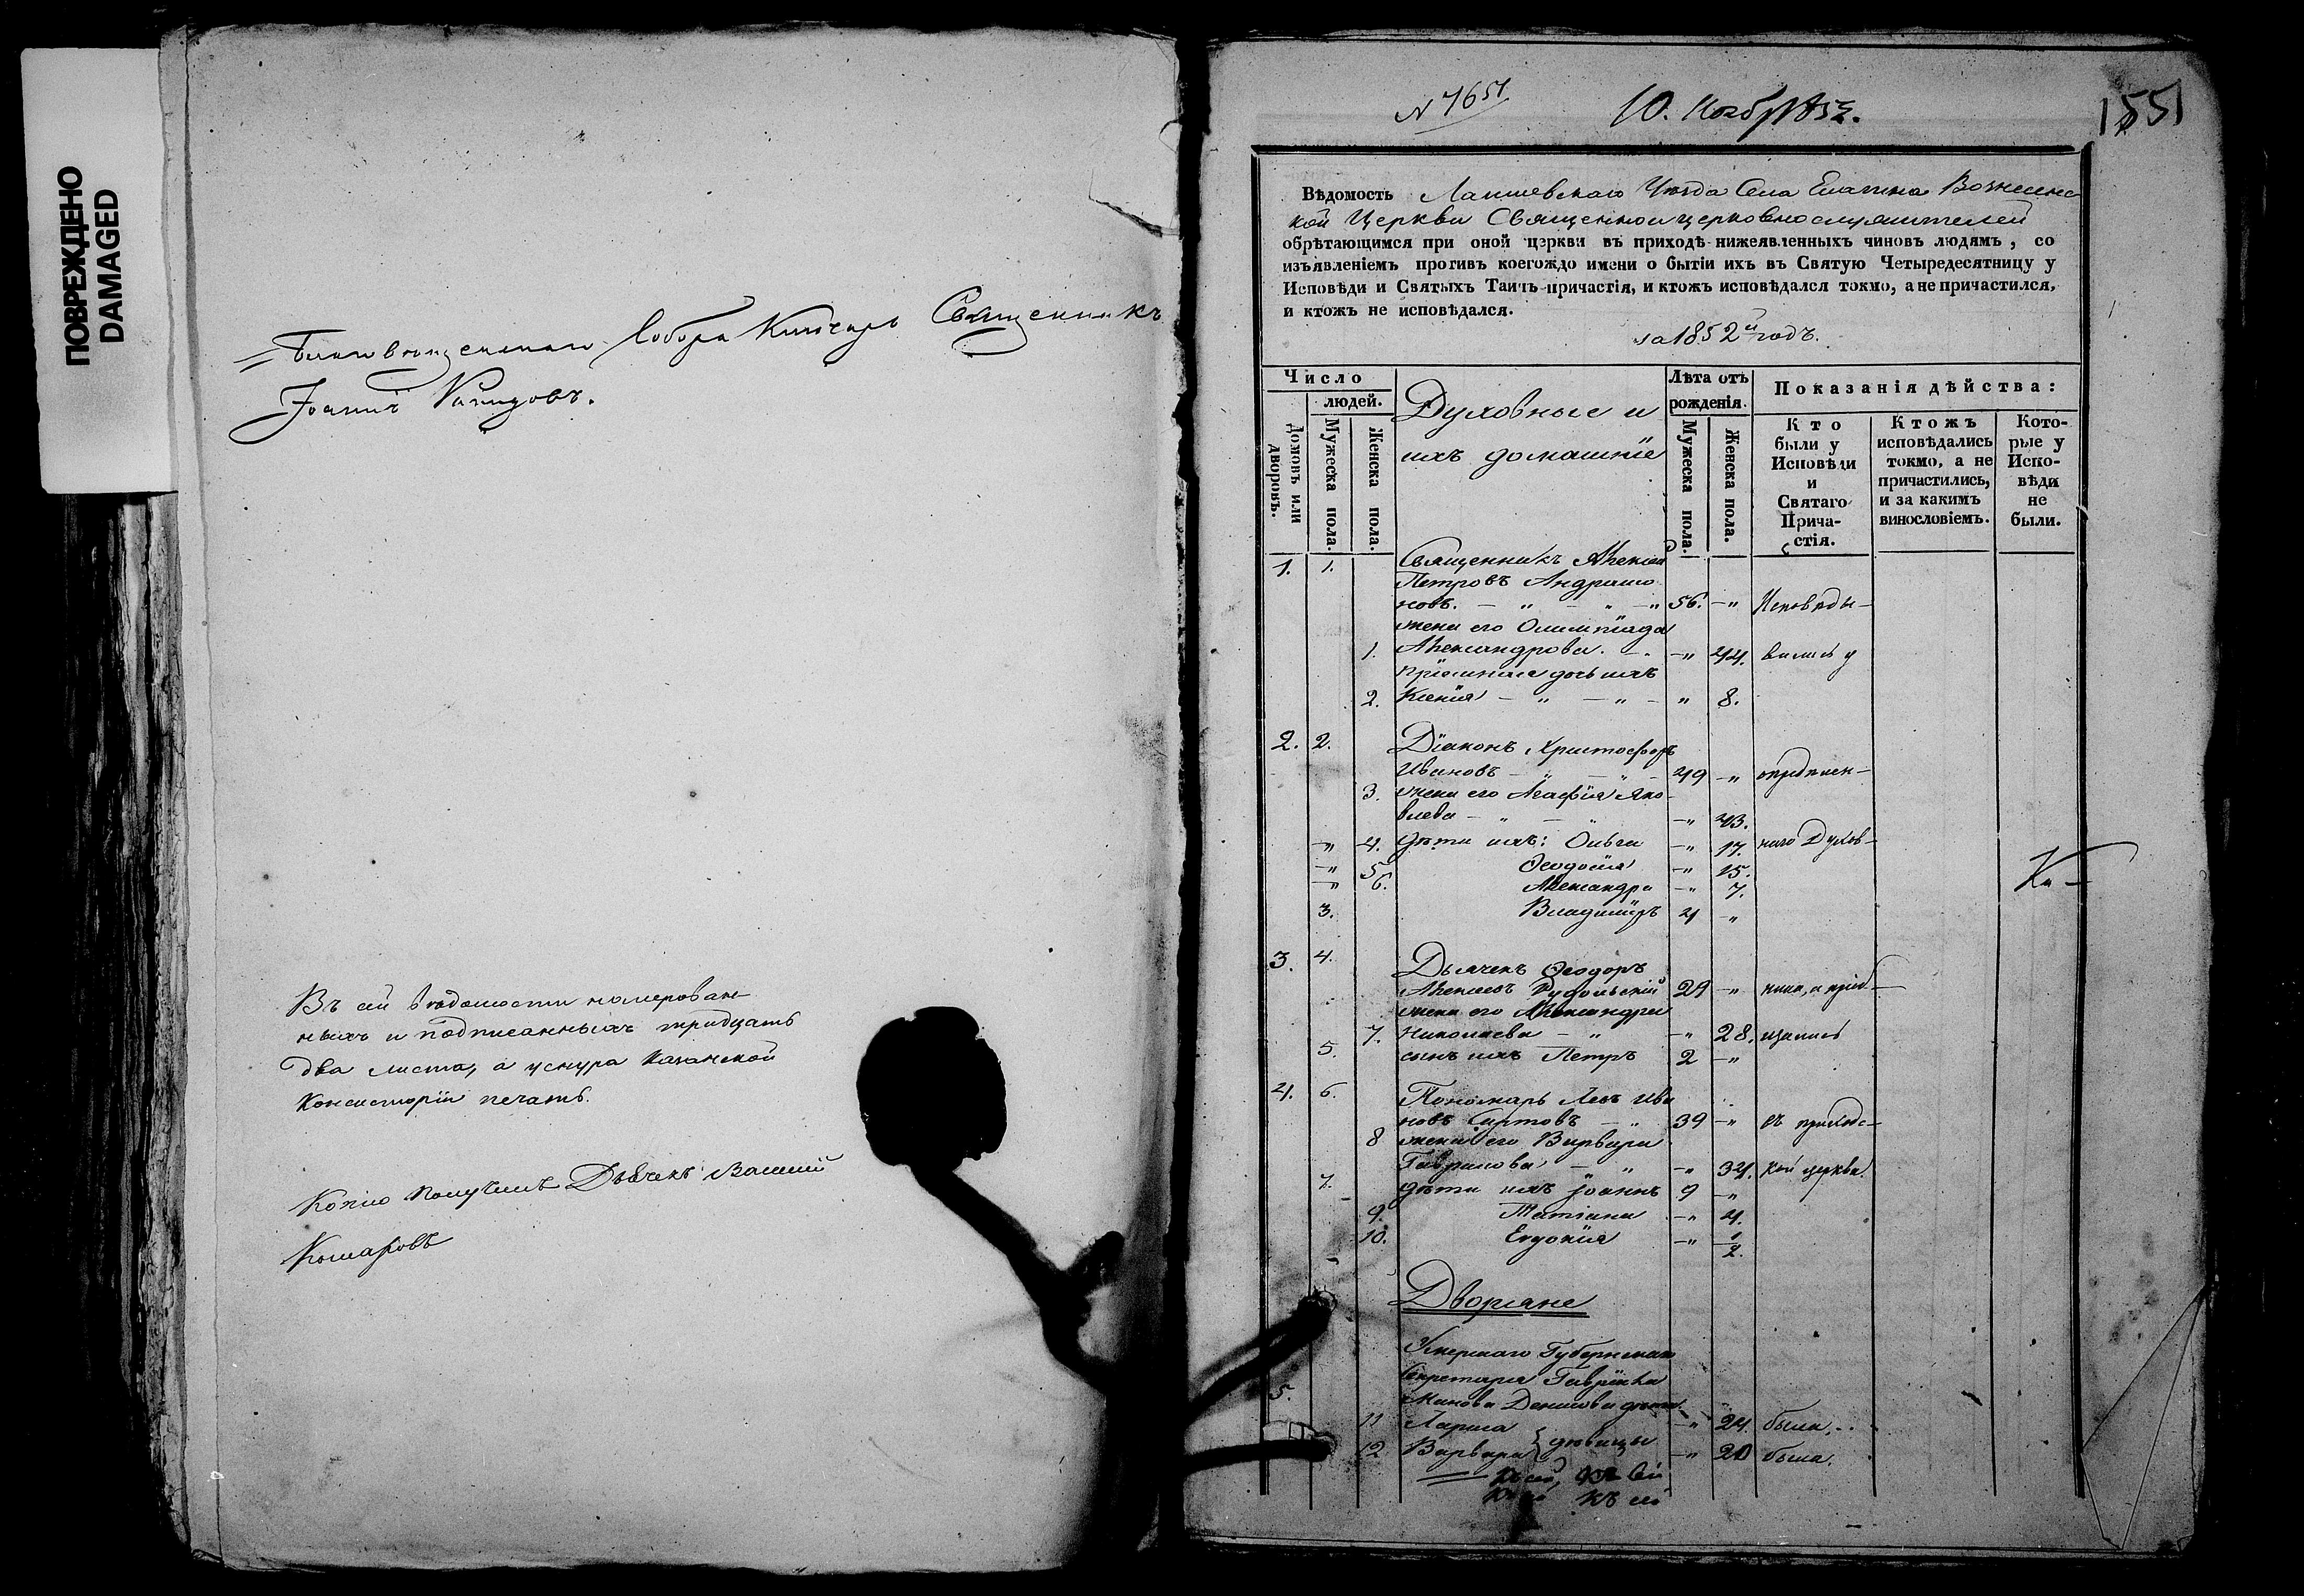 ПОВРЕЖДЕНО
DAMAGED
Благовѣщенскаго Собора Ключарь Священникъ
Іоаннъ
Въ сей вѣдомости номерован-
ныхъ и подписанныхъ тридцать
два листа, а у снура Казанской
Консисторіи печать.
Копію получилъ Дьячекъ Василій
Комаровъ
N 7651
10. Нояб 1852.
1551
Вѣдомость Лаишевскаго Уѣзда Села Елагина Вознесенс
кой Церкви Священно и церковнослужителей
обрѣтающимся при оной церкви въ приходѣ нижеявленныхъ чиновъ людямъ, со
изъявленіемъ противъ коегождо имени о бытіи ихъ въ Святую Четыредесятницу у
Исповѣди и Святыхъ Таинъ причастія, и ктожъ исповѣдался токмо, а не причастился,
и ктожъ не исповѣдался.
за 1852й годъ.
Число
людей.
Домовъ или дворовъ.
Мужеска пола.
Женска пола.
Духовные и
ихъ домашніе
Лѣта отъ
рожденія.
Мужеска пола.
Женска пола.
Показанія дѣйства:
Кто
были у
Исповѣди
и
Святаго
Прича-
стія.
Ктожъ
исповѣдались
токмо, а не
причастились,
и за какимъ
винословіемъ.
Кото-
рые у
Испо-
вѣди
не
были.
1. 1. Священникъ Алексій
Петровъ Андрино
новъ. — " — " — " 56. — " Исповѣды-
жена его Олимпіада
1. Александрова. — " 44. вались у
пріемная дочь ихъ
2. Ксенія — " — " — " 8.
2. 2. Діаконъ Христофоръ
Ивановъ — " — " — 49 — " опредѣлен-
3. жена его Агафія Яко-
влева — " — " — " 43.
— " 4. дѣти ихъ: Ольга — " 17. наго Духов-
— " 5. Ѳеодосія — " 15.
— " 6. Александра — " 7.
3. Владиміръ 4 — "
Ка—
3. 4. Дьячекъ Ѳеодоръ
Алексѣевъ 29 — " ника, и пріоб-
жена его Александра
7. Николаева — " — " 28. щались
5. сынъ ихъ Петръ 2 — "
4. 6. Пономарь Левъ Ива
новъ Сартовъ — " 39 — " въ приходс-
8 жена его Варвара
Гаврилова — " — " 34. кой церкви.
7. дѣти ихъ Іоаннъ 9 — "
9. Татіана — " 4.
10. Евдокія — " 1/2.
Дворяне
Умершаго Губернскаго
5. Секретаря Гавріила
Денисова дѣти
11 Лариса — " 24. была.
12 Варвара } дѣвицы — " 20 была.